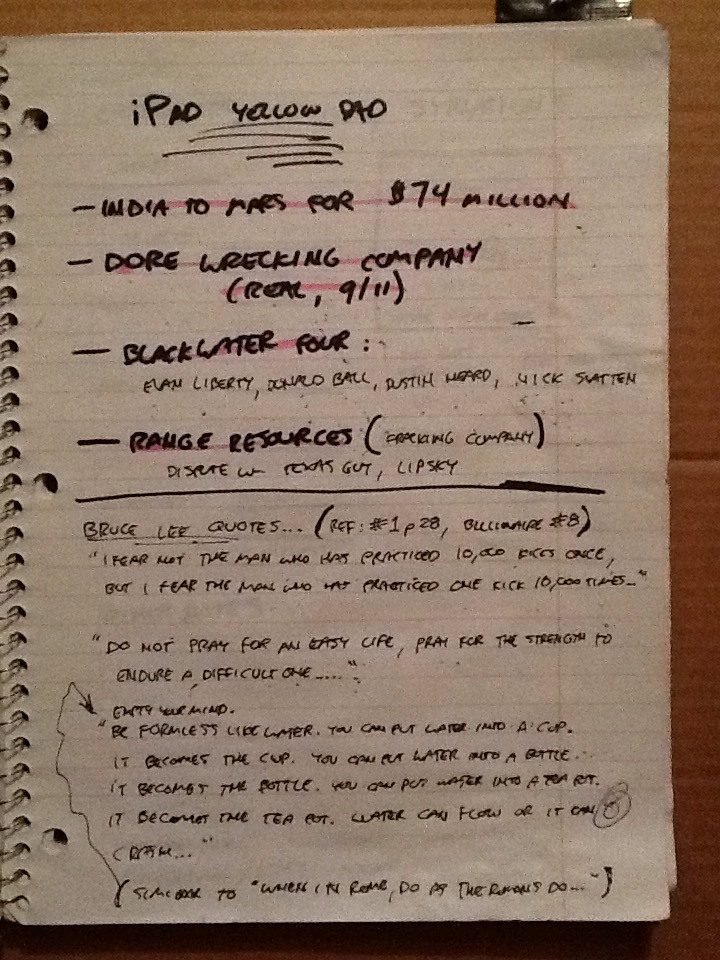 iPAD YELLOW PAD
— INDIA TO MARS FOR $74 MILLION
— DORE WRECKING COMPANY
(REAL, 9/11)
— BLACKWATER FOUR:
EVAN LIBERTY, DONALD BALL, DUSTIN HEARD, NICK SLATTEN
— RANGE RESOURCES (FRACKING COMPANY)
DISPUTE W/ TEXAS GUY, LIPSKY
BRUCE LEE QUOTES... (REF: #1 p 28, BILLIONAIRE #8)
"I FEAR NOT THE MAN WHO HAS PRACTICED 10,000 KICKS ONCE,
BUT I FEAR THE MAN WHO HAS PRACTICED ONE KICK 10,000 TIMES..."
"DO NOT PRAY FOR AN EASY LIFE, PRAY FOR THE STRENGTH TO
ENDURE A DIFFICULT ONE....."
EMPTY YOUR MIND.
"BE FORMLESS LIKE WATER. YOU CAN PUT WATER INTO A CUP.
IT BECOMES THE CUP. YOU CAN PUT WATER INTO A BOTTLE.
IT BECOMES THE BOTTLE. YOU CAN PUT WATER INTO A TEA POT.
IT BECOMES THE TEA POT. WATER CAN FLOW OR IT CAN
CRASH..."
(SIMILAR TO "WHEN IN ROME, DO AS THE ROMANS DO...")